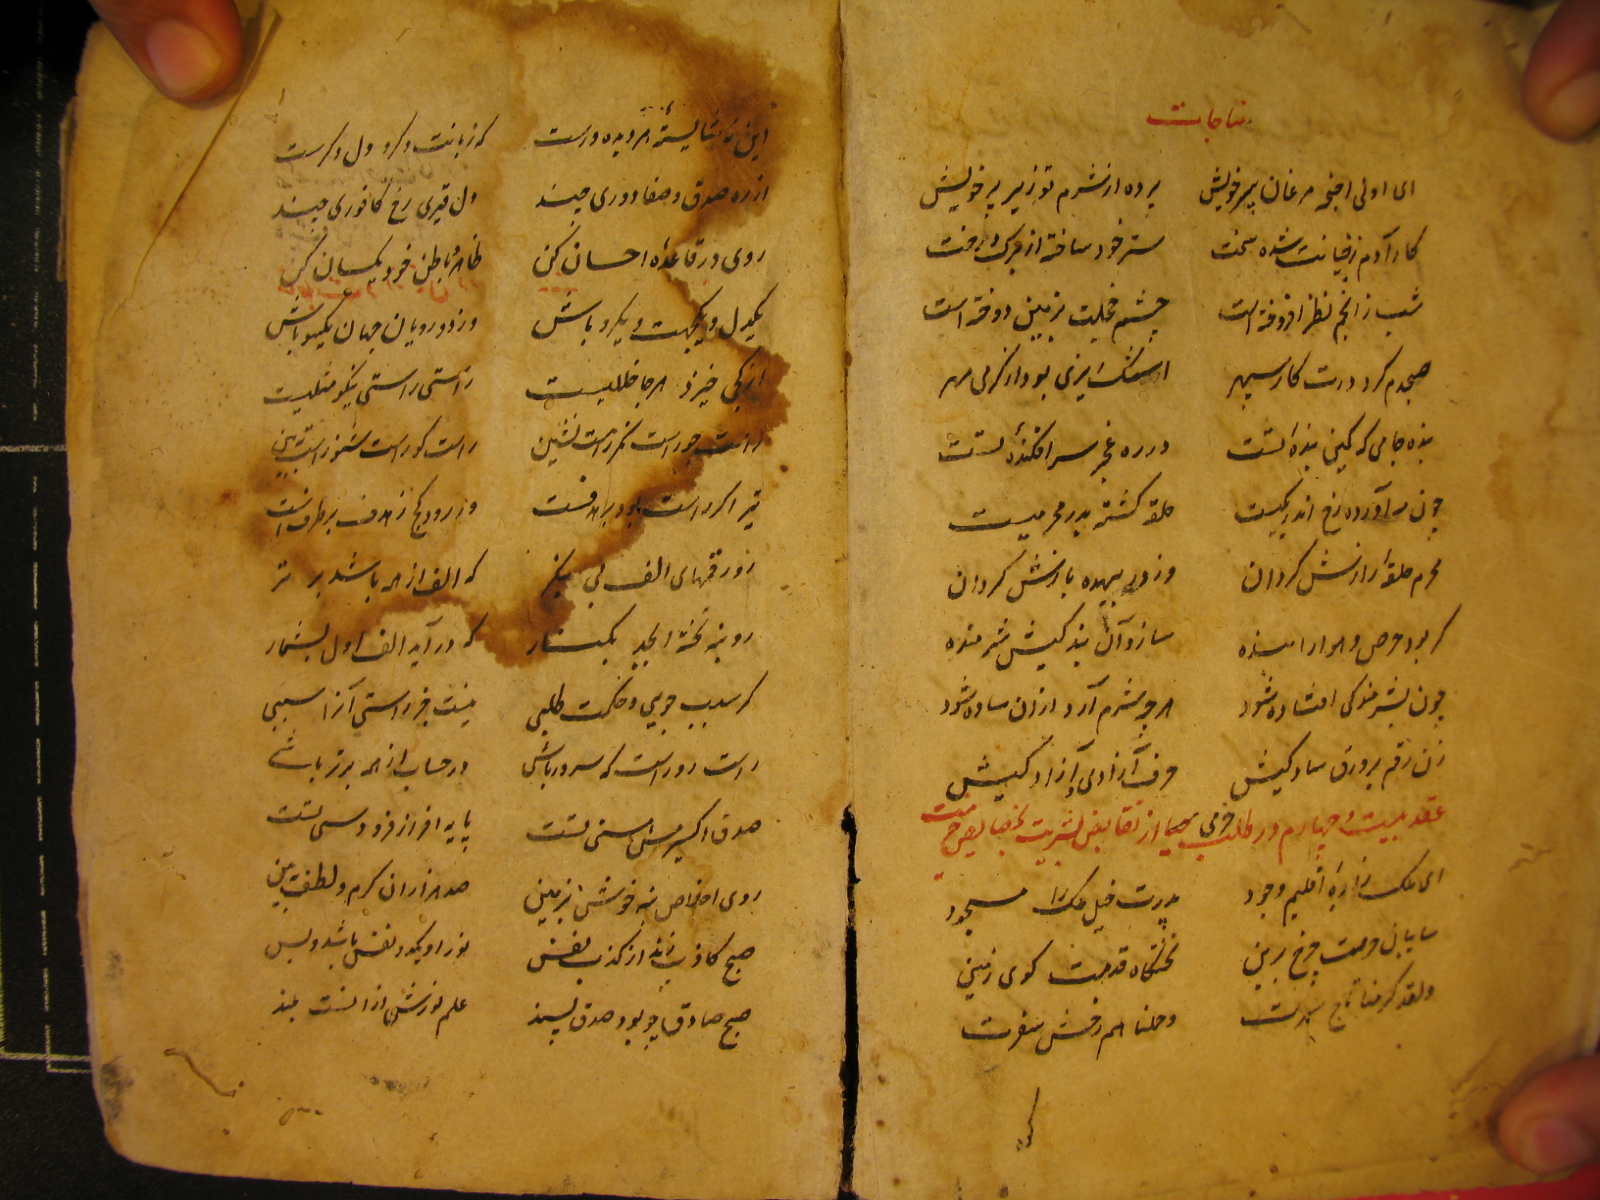 مناجات
ای اولی اجنحه مرغان پیر خویش پرده از شرم تو زیر پر خویش
کار آدم ز خیانت شده سخت ستر خود ساخته از برک درخت
شب ز انجم نظر افروخته است چشم خجلت بزمین دوخته است
صبحدم کرد درت کار سپهر اشک ریزی بود از کرمی مهر
بنده جامی که کمین بنده تست در ره عجز سر افکنده تست
چون مه آورده رخ اندر کمیت حلقه کشته بدر محرمیت
محرم حلقه رازش کردان وز در بیهده بازش کردان
کر بود حرص و هوا را بنده سازد آن بندکیش شرمنده
چون بشرمندکی افتاده شود هر چه شرم آرد ازان ساده شود
زن رقم بر ورق سادکیش حرف آزادی و آزادکیش
عقد بیست و چهارم در طلب از نقایص بشریت
ای ملک زاده اقلیم وجود پدرت خیل ملک را مسجود
سایبان حرمت چرخ برین تختکاه قدمت کوی زمین
ولقد کرمنا تاج سرت وحملنا هم رخش سفرت
این نه شایسته هر دیده ورست که زبانت دکر و دل دکرست
از ره صدق و صفا دوری چند دل قیری رخ کافوری چند
روی در قاعده احسان کن ظاهر و باطن خود یکسان کن
یکدل و یکجهت و یکرو باش وز دورویان جهان یکسو باش
از کجی خیزد هرجا خللیست راستی راستی نیکو مثلیست
راست جو راست نکر راست کزین راست کو راست شنو راست نشین
تیر اکر راست رود بر هدفست ور رود کج ز هدف بر طرفست
ز رقمهای الف بی بنکر که الف از همه باشد برتر
رو بنه تخته ابجد بکنار که درآید الف اول بشمار
کر سبب جویی و حکمت طلبی نیست جز راستی آنرا سببی
راست رو راست که سرور باشی در حساب از همه برتر باشی
صدق اکسیر مس هستی تست پایه افراز فرودستی تست
روی اخلاص نه خوش بزمین صد هزاران کرم و لطف ببین
صبح کاذب زند از کذب نفس نور او یکدو نفس باشد و بس
صبح صادق چو بود صدق پسند علم نورش ازانست بلند